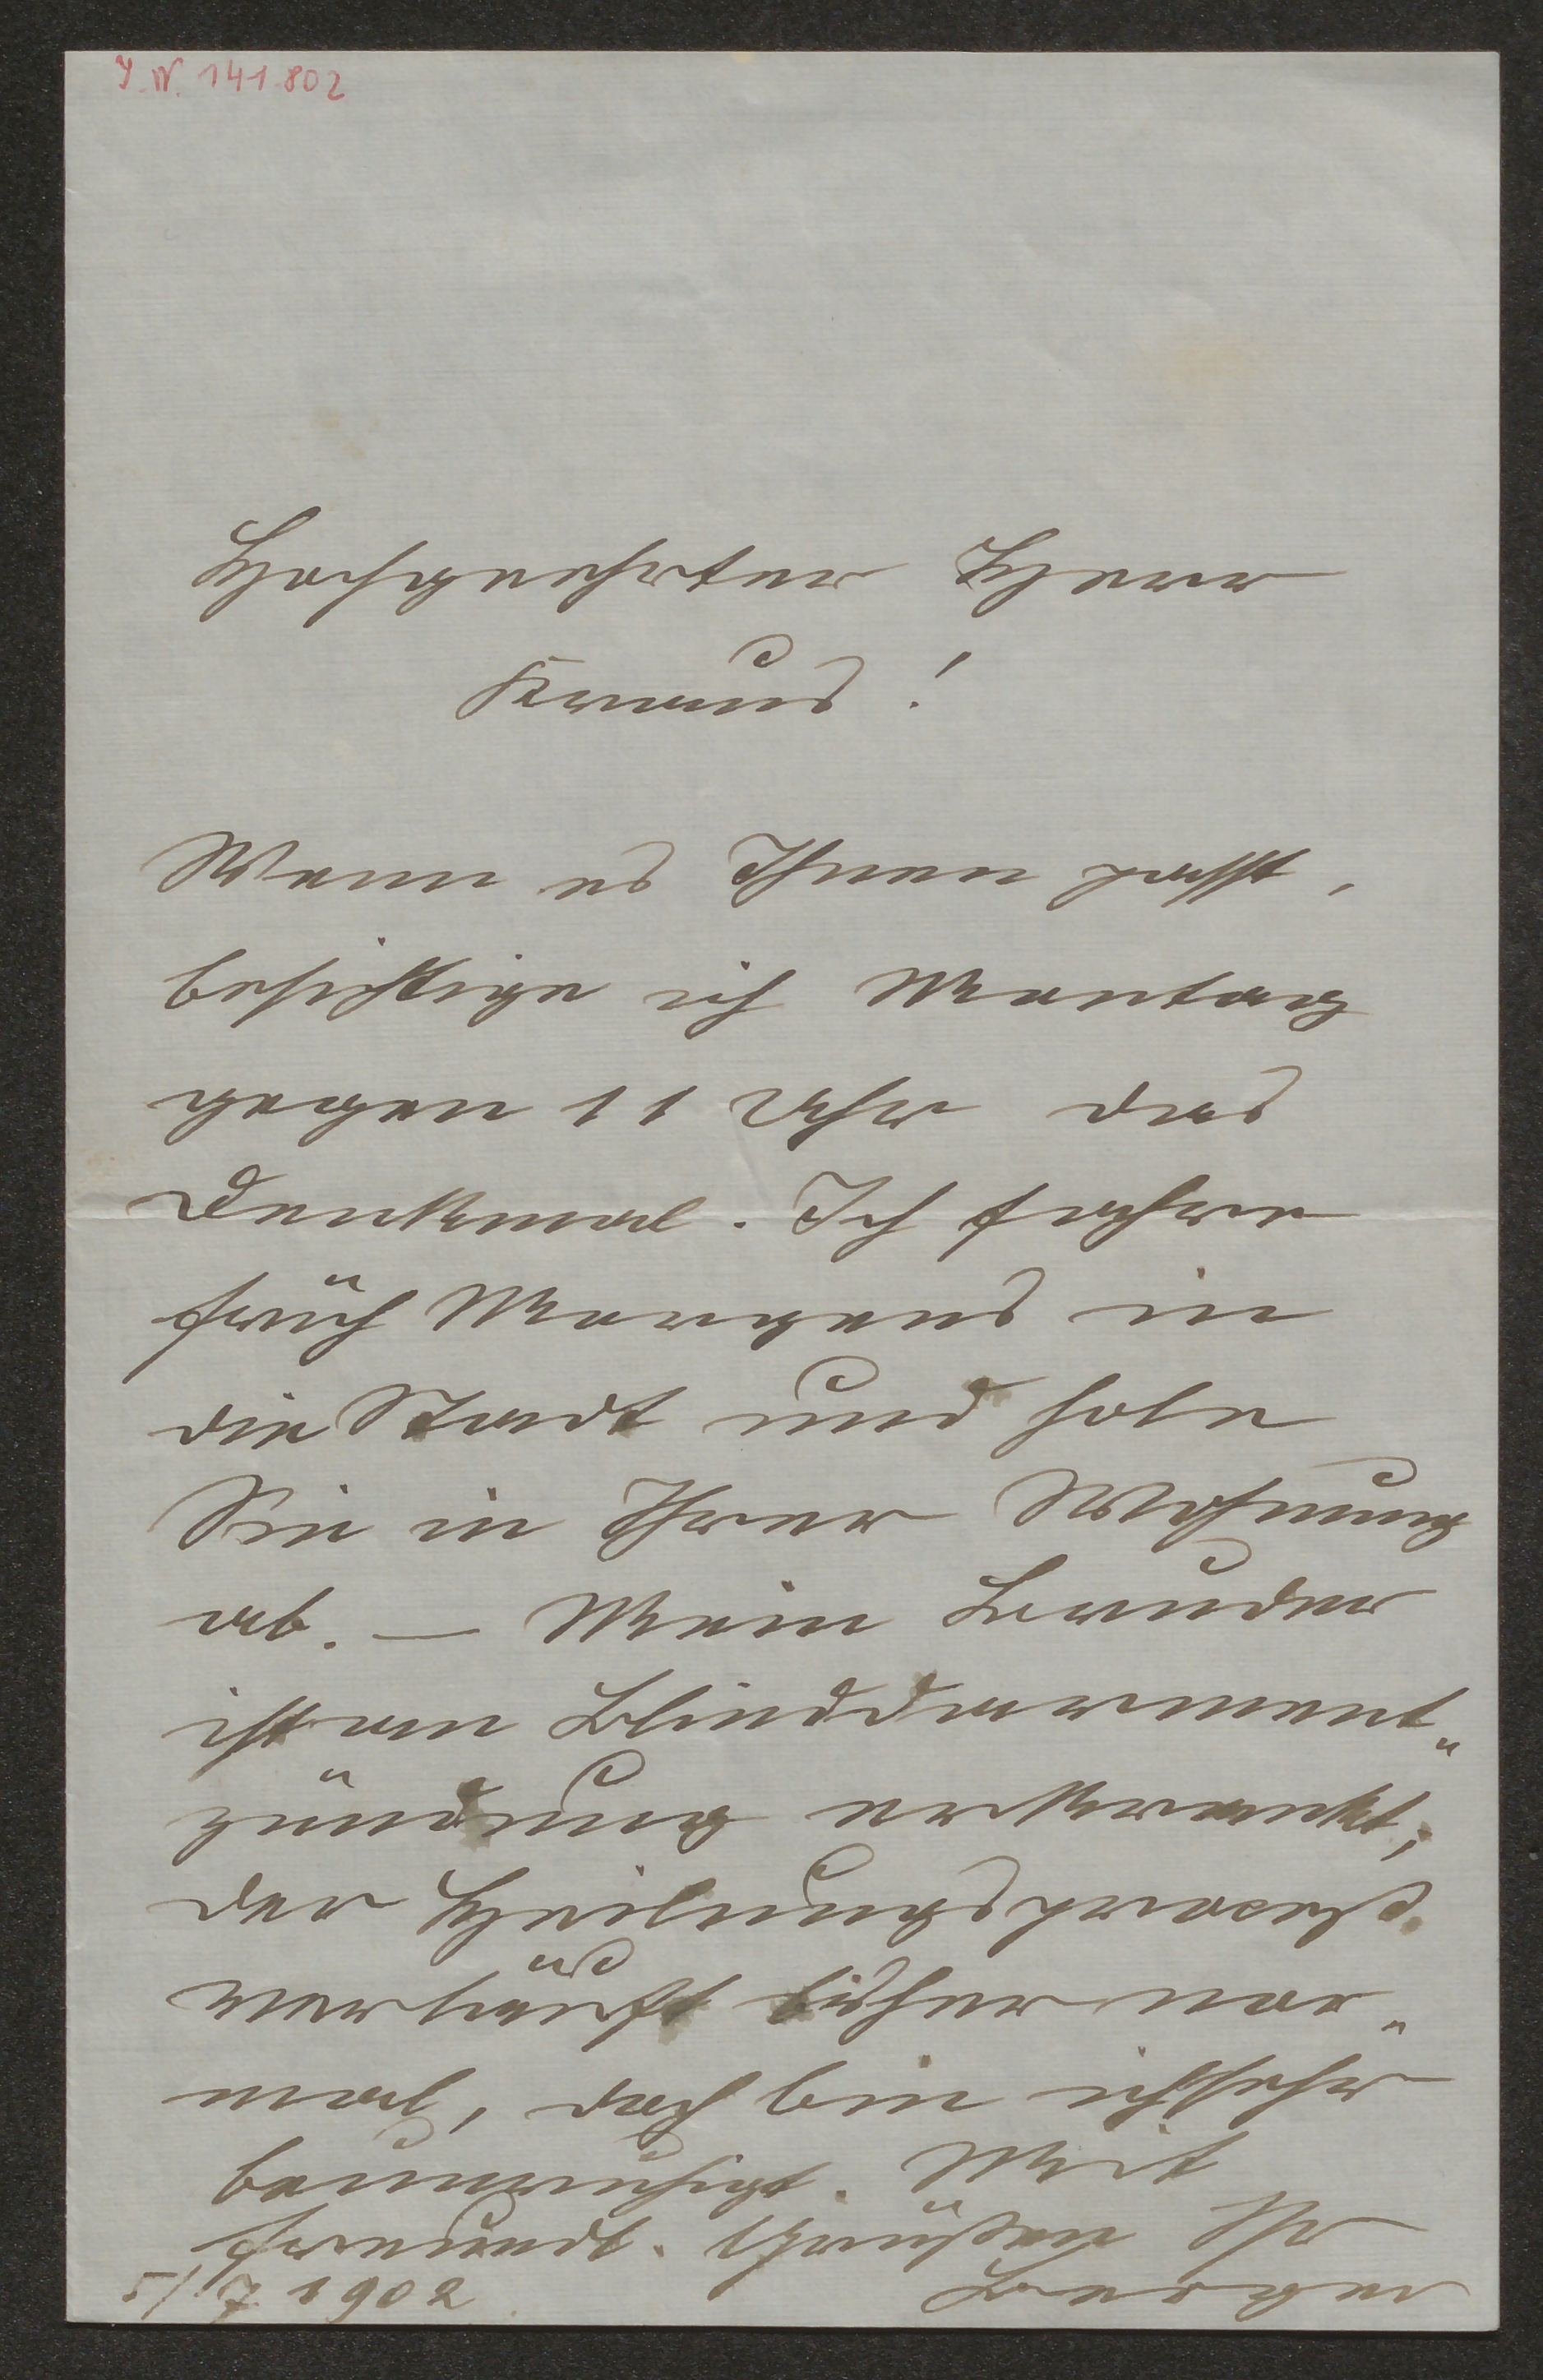 J.N. 141.802
Hochgeehrter Herr
Kraus!
Wenn es Ihnen passt,
besichtige ich Montag
gegen 11 Uhr das
Denkmal. Ich fahre
früh Morgens in
die Stadt und hole
Sie in Ihrer Wohnung
ab. – Mein Bruder
ist an Blinddarment„
zündung erkrankt;
der Heilungsproceß
verläuft bisher nor„
mal, doch bin ich sehr
beunruhigt. Mit
freundl. Grüßen Ihr
5/7 1902 Berger